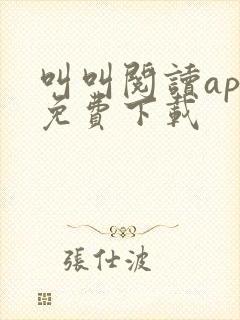 叫叫閱讀ap
免費下載
張仕波